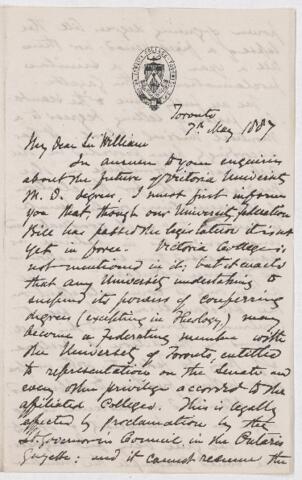 Toronto
7th May 1887
My Dear Sir William
In answer to your enquiries
about the future of Victoria University
M. D. degrees, I must first inform
you that, though our University Federation
Bill has passed the legislature it is not
yet in force. Victoria College is
not mentioned in it; but it enacts
that any University undertaking to
suspend its powers of conferring
degrees (excepting in Theology) may
become a Federating member with
the University of Toronto, entitled
to representation on the Senate and
every other privilege accorded to the
affiliated Colleges. This is legally
effected by proclamation by the
Lt. Governor in Council, in the Ontario
Gazette: and it cannot resume the